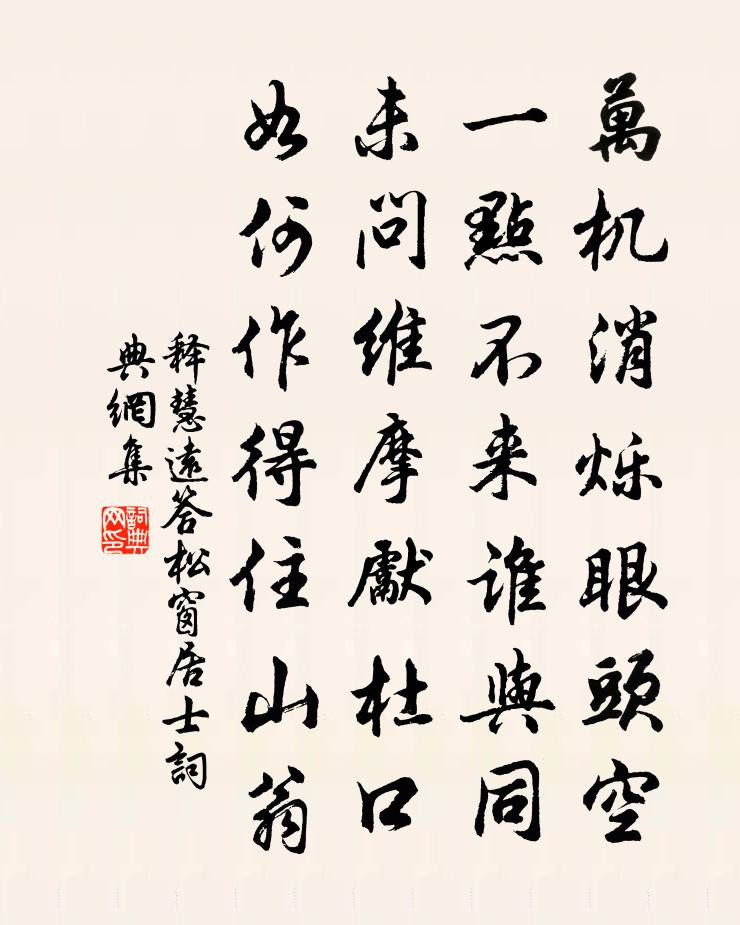 萬机消烁眼頭空
一點不来谁與同
未問維摩獻杜口
如何作得住山翁
释慧遠答松窗居士詞
典網集
詞典网印